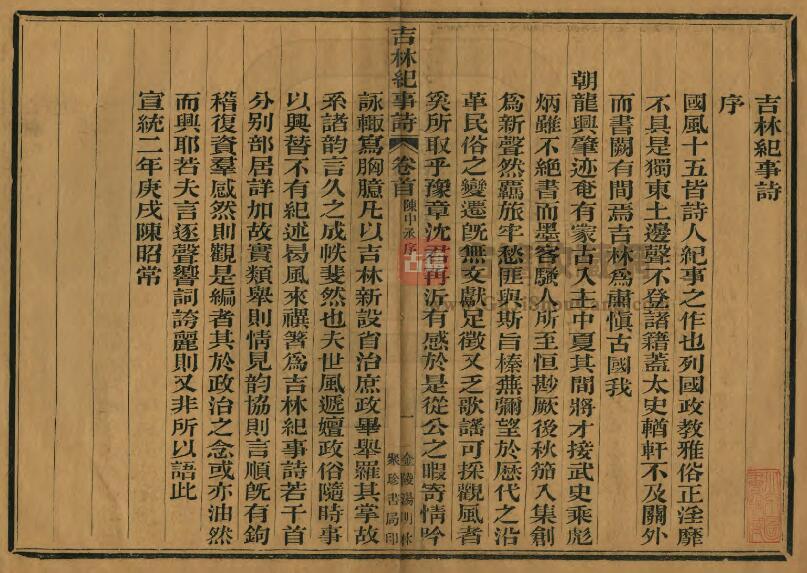 吉林紀事詩
序
國風十五皆詩人紀事之作也列國政教雅俗正淫靡
不具是獨東土邊聲不登諸籍蓋太史輶軒不及關外
而書闕有間焉吉林爲肅愼古國我
朝龍興肇迹奄有蒙古入主中夏其間將才接武史乘彪
炳雖不絕書而墨客騷人所至恒尠厥後秋笳入集創
爲新聲然羈旅牢愁匪與斯旨榛蕪彌望於歷代之沿
革民俗之變遷旣無文獻足徵又乏歌謠可採觀風者
奚所取乎豫章沈君再沂有感於是從公之暇寄情吟
吉林紀事詩 卷首 陳中丞序 一 金陵湯明林聚珍書局印
詠輙寫胸臆凡以吉林新設首治庶政畢舉羅其掌故
系諸韵言久之成帙斐然也夫世風遞嬗政俗隨時事
以興替不有紀述曷風來禩箸爲吉林紀事詩若干首
分別部居詳加故實類舉則情見韵協則言順旣有鉤
稽復資羣感然則觀是編者其於政治之念或亦油然
而興耶若夫言逐聲響詞誇麗則又非所以語此
宣統二年庚戌陳昭常